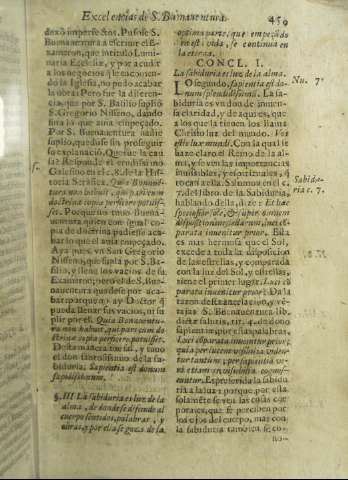 Excelencias de S. Buenaventura.
459
dexò imperfectos. Pusose S.
Buenaventura a escrivir el E-
xameron, que intitulò Lumi-
naria Ecclesiæ, y por acudir
a los negocios que le encomen-
dò la Iglesia, no pudo acabar
la obra: Pero fue la diferen-
cia, que por S. Basilio suplió
S. Gregorio Nisseno, dando
fin a lo que avia empeçado.
Por S. Buenaventura nadie
suplió, quedose sin proseguir
su explanació. Què fue la cau-
sa? Responde el eruditissimo
Galesino en el c. 8. de la His-
toria Serafica. Quia Bonaventu-
ra non habuit, qui pari cum
doctrina copia perficere potuis-
ses. Porque no tuvo Buena-
ventura quien con igual co-
pia de doctrina pudiesse aca-
bar lo que el avia empeçado.
Aya pues, vn San Gregorio
Nisseno, que supla por S. Ba-
silio, y llene los vacios de su
Exameron; pero el de S. Bue-
naventura quedese por aca-
bar, porque no ay Doctor q̃
pueda llenar sus vacios, ni su
plir por el. Quia Bonaventura
non habuit, qui pari cum do-
ctrina copia perficere potuisset.
el don santissimo de la sa-
biduria. Sapientia est donum
§. III. La sabiduria es luz de la
alma, de donde se difunde al
cuerpo sentidos, palabras, y
obras, y por ella se gusta de la
optima parte, que empeçãdo
en esta vida, se continua en
la eterna.
CONCL. I.
La sabiduria es luz de la alma.
Nu. 7
LO segundo, sapientia est do-
num splendidissimũ. La sa-
biduria es vn don de inmen-
sa claridad, y de aqui es, que
a los que la tienen los llama
Christo luz del mundo. Vos
estis lux mundi. Con la qual se
haze claro el Reyno de la al-
ma, y se ven las importancias
invisibles, y espirituales, q̃
Sabidu-
ria c. 7.
7. del libro de la Sabiduria,
hablando della, dize: Est hæc
speciosior sole, & super omnem
dispositionem stellarum, luci cõ-
parata invenitur prior. Esta
es mas hermosa que el Sol,
excede a toda la disposicion
de las estrellas, y comparada
con la luz del Sol, y estrellas,
tiene el primer lugar. Luci cõ-
parata invenitur prior. Da la
tajas S. Buenaventura lib.
Luci cõparata invenitur prior;
quia per lucem visibilia viden-
tur tantum; per sapientiã ve-
rò etiam invisibilia cognos-
cuntur. Es preferida la sabidu
ria a la luz; porque por ella
solamẽte se ven las cosas cor-
porales, que se perciben por
los ojos del cuerpo, mas con
la sabiduria tambien se co-
no-